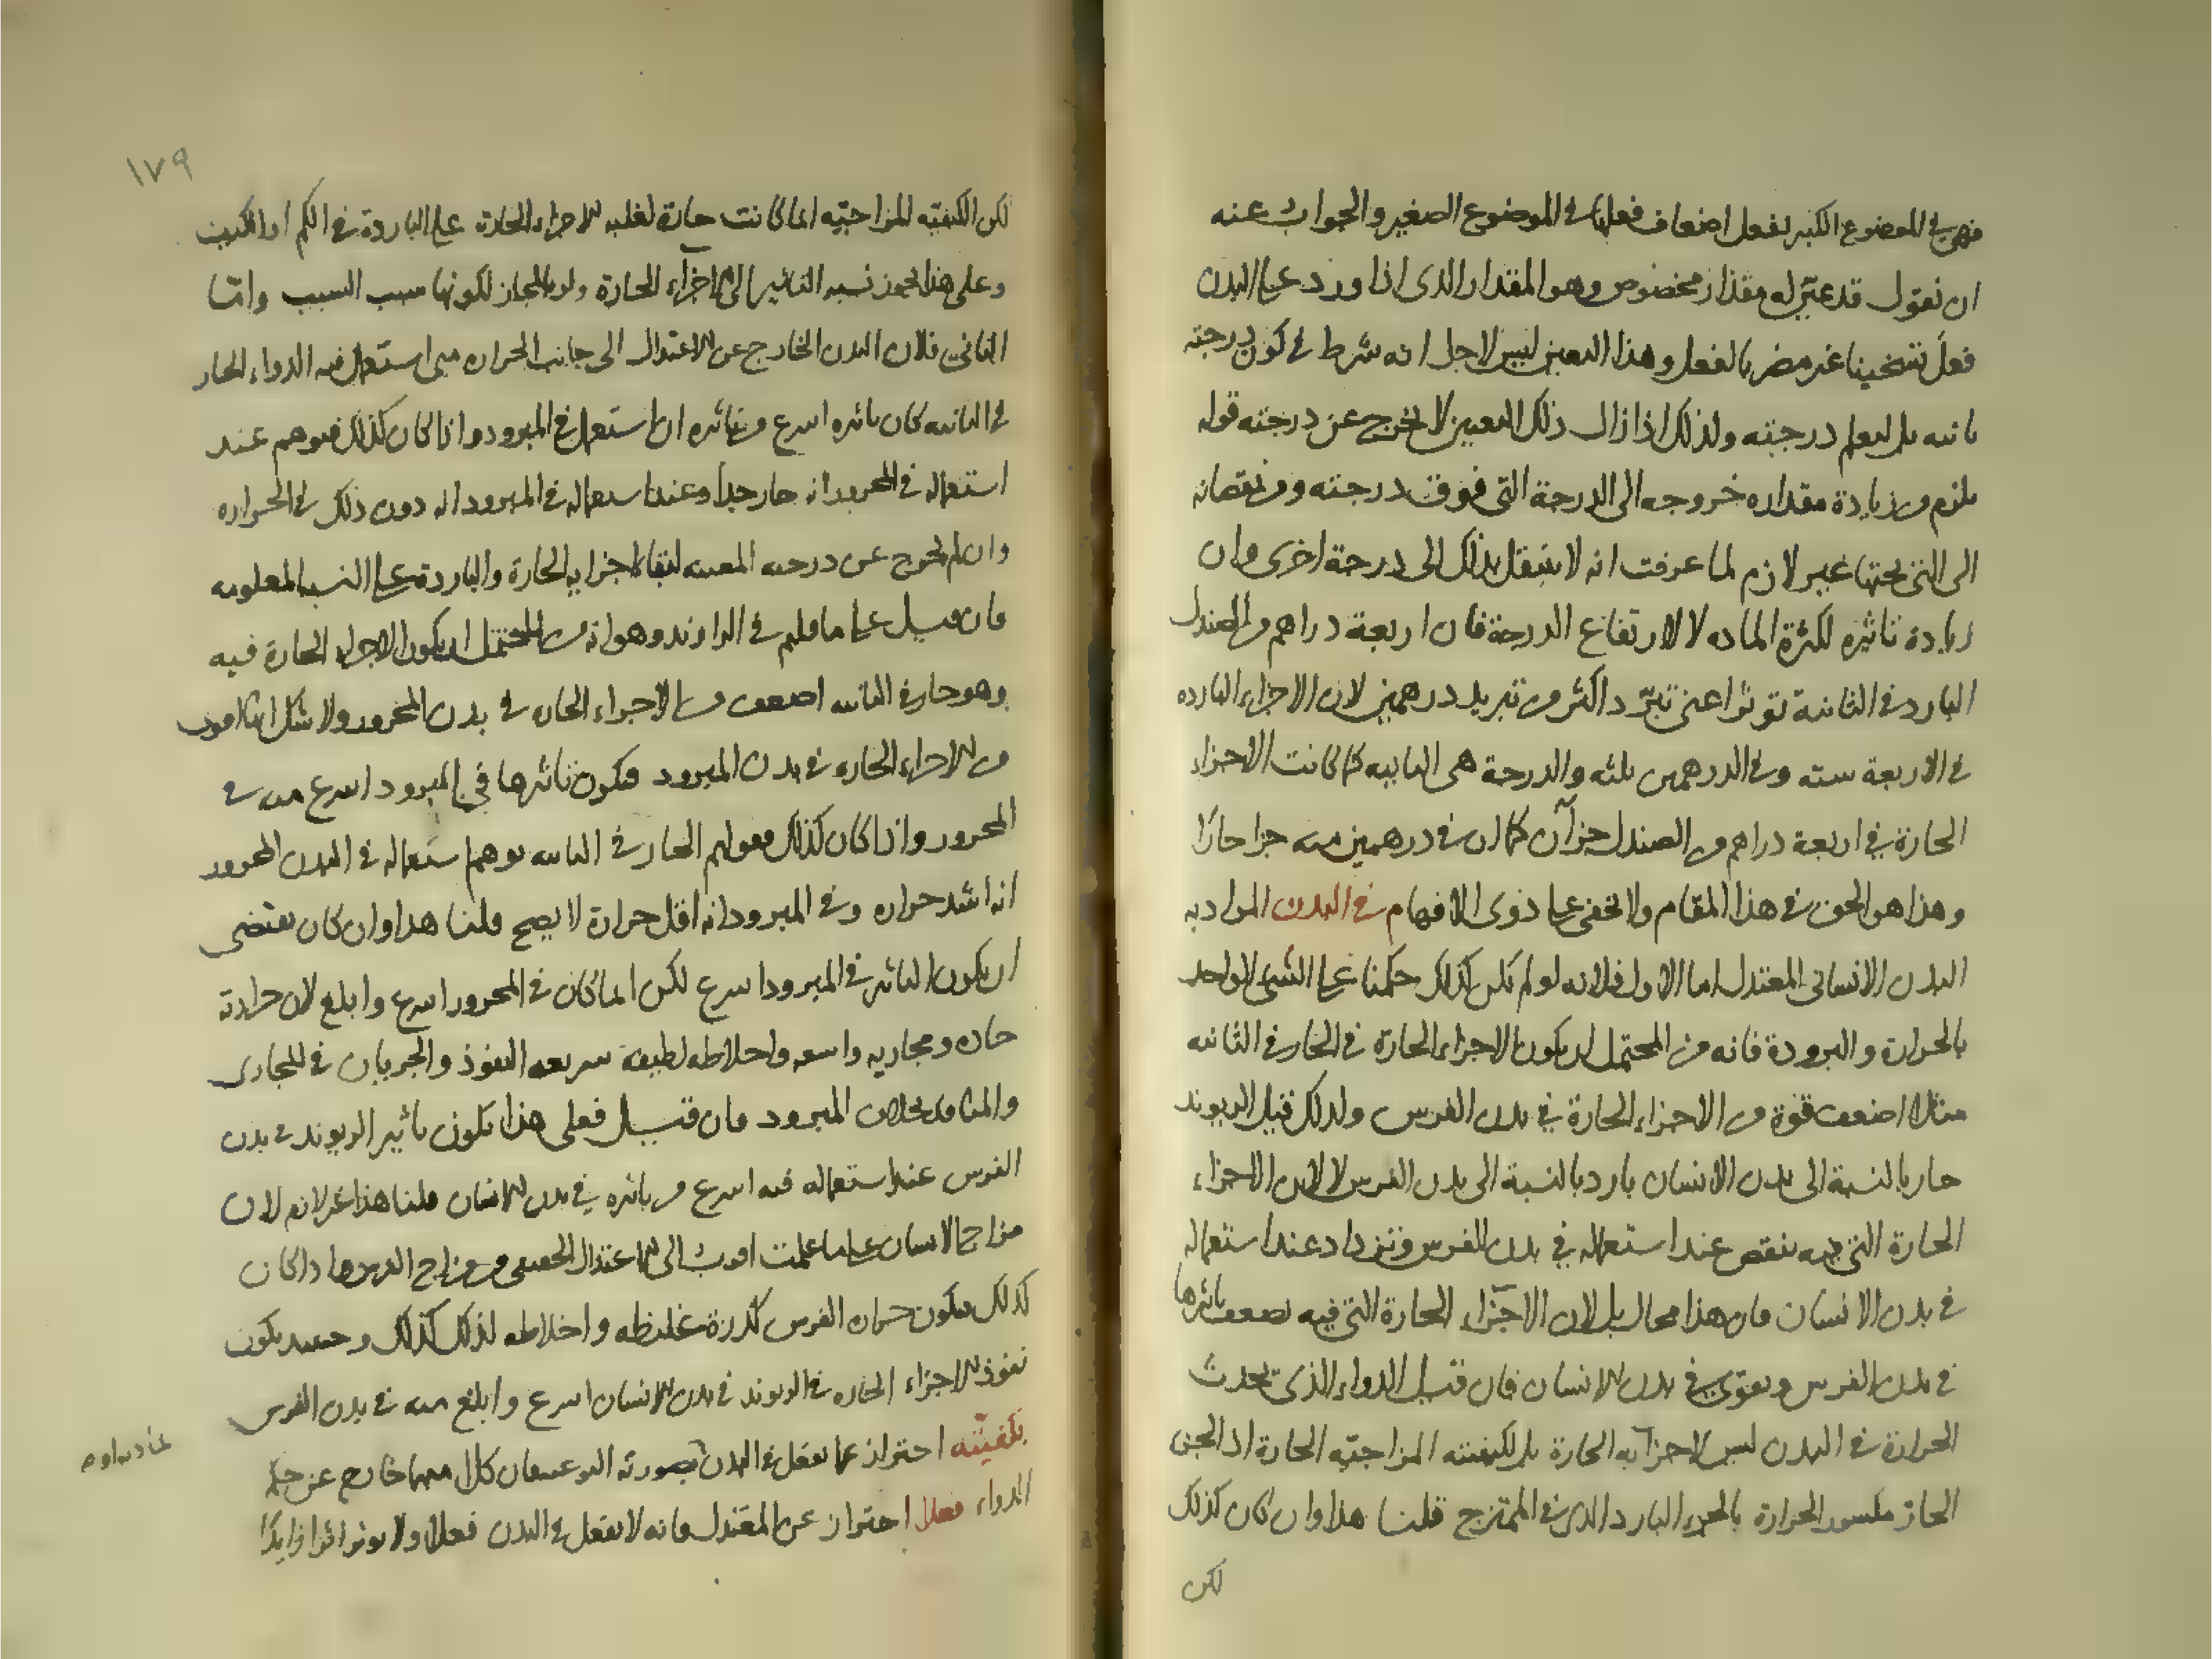 فهي في الموضوع الكبير تفعل اضعاف فعلها في الموضوع الصغير والجواب عنه
ان نقول قد عين له مقدار مخصوص وهو المقدار الذى اذا ورد على البدن
فعل تسخينا غير مضر بالفعل وهذا التعين ليس لاجل انه شرط في كون درجته
ثانيه بل ليعلم درجته ولذلك اذا زال ذلك التعين لا تخرج عن درجته قوله
يلزم من زيادة مقداره خروجه الى الدرجة التى فوق درجته ومن نقصانه
الى التى تحتها غير لازم لما عرفت انه لا ينتقل بذلك الى درجة اخرى وان
زيادة تاثيره لكثرة الماده لا لارتفاع الدرجة فان اربعة دراهم من الصندل
البارد في الثانية تؤثر اعنى تبرد اكثر من تبريد درهمين لان الاجزاء البارده
في الاربعة سته وفي الدرهمين ثلثه والدرجة هى الثانيه كما كانت الاجزاء
الحارة في اربعة دراهم من الصندل جزآن كما ان في درهمين منه جزا حارا
وهذا هو الحق في هذا المقام ولا يخفى على ذوى الافهام في البدن المراد به
البدن الانسانى المعتدل اما الاول فلانه لو لم تكن كذلك حكمنا على الشئ الواحد
بالحرارة والبرودة فانه من المحتمل ان يكون الاجزاء الحارة في الحار في الثانيه
مثلا اضعف قوة من الاجزاء الحارة في بدن الفرس ولذلك قيل الريوند
حار بالنسبة الى بدن الانسان بارد بالنسبة الى بدن الفرس لا لان الاجزاء
الحارة التى فيه تنقص عند استعماله في بدن الفرس وتزداد عند استعماله
في بدن الانسان فان هذا محال بل لان الاجزاء الحارة التى فيه تضعف تاثيرها
في بدن الفرس ويقوى في بدن الانسان فان قيل الدواء الذى تحدث
الحرارة في البدن ليس لاجزائه الحارة بل لكيفيته المزاجيّه الحارة اذ الجزء
الحار مكسور الحرارة بالجزء البارد الذى في الممتزج قلنا هذا وان كان كذلك
لكن
١٧٩
لكن الكيفيّه المزاجيّه انما كانت حارة لغلبه الاجزاء الحارة على الباردة في الكم او الكيف
وعلى هذا يجوز نسبه التاثير الى الاجزآء الحارة ولو بالمجاز لكونها سبب السبب واما
الثانى فلان البدن الخارج عن الاعتدال الى جانب الحراره متى استعمل فيه الدواء الحار
في الثانيه كان تاثيره اسرع من تاثيره ان استعمل في المبرود واذا كان كذلك فيتوهم عند
استعماله في المحرور انه حار جدا وعند استعماله في المبرود انه دون ذلك في الحراره
وان لم يخرج عن درجته المعينه لبقا اجزائه الحارة والباردة على النسب المعلومه
فان قيل على ما قلتم في الراوند وهو انه من المحتمل ان يكون الاجزاء الحارة فيه
وهو حار في الثانيه اضعف من الاجزاء الحاره في بدن المحرور ولا شك انها اقوى
من الاجزاء الحاره في بدن المبرود فيكون تاثيرها في المبرود اسرع منه في
المحرور واذا كان كذلك فقولهم الحار في الثانيه يوهم استعماله في البدن المحرور
انه اشد حراره وفي المبرود انه اقل حرارة لا يصح قلنا هذا وان كان يقتضى
ان يكون التاثير في المبرود اسرع لكن انما كان في المحرور اسرع وابلغ لان حرارته
حاده ومجاريه واسعه واخلاطه لطيفة سريعه النفوذ والجريان في المجارى
والمنافذ بخلاف المبرود فان قيل فعلى هذا يكون تاثير الريوند في بدن
الفرس عند استعماله فيه اسرع من تاثيره في بدن الانسان قلنا هذا غير لازم لان
مزاج الانسان على ما علمت اقرب الى الاعتدال الحقيقى من مزاج الفرس واذا كان
كذلك فيكون حراره الفرس كدرة غليظه واخلاطه لذلك كذلك وحينئذ يكون
نفوذ الاجزاء الحاره في الريوند في بدن الانسان اسرع وابلغ منه في بدن الفرس
بكيفيّته احتراز عما يفعل في البدن بصورته النوعيه فان كلا منهما خارج عن حد
الدواء فعلا احتراز عن المعتدل فانه لا يفعل في البدن فعلا ولا يوثر اثرا زايدا